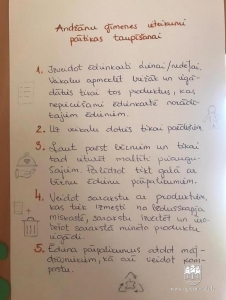 Andžānu ģimenes ieteikumi
pārtikas taupīšanai
1. Izveidot ēdienkarti dienai/nedēļai.
Veikalu apmeklēt biežāk un iegā-
dāties tikai tos produktus, kas
nepieciešami ēdienkartē norādī-
tajiem ēdieniem.
2. Uz veikalu doties tikai paēdušiem.
3. Ļaut pašiem bērniem un tikai
tad uzturēt maltīti pieaugu-
šajiem. Palīdzēt tikt galā ar
bērnu ēdienu pārpalikumiem.
4. Veidot sarakstu ar produktiem
kas tiek izmesti no ledusskapja
miskastē, sarakstu izvērtēt un
sarakstā minēto produktu
iegādi.
5. Ēdiena pārpalikumus atdod māj-
dzīvniekiem, kā arī veidot kom-
postu.